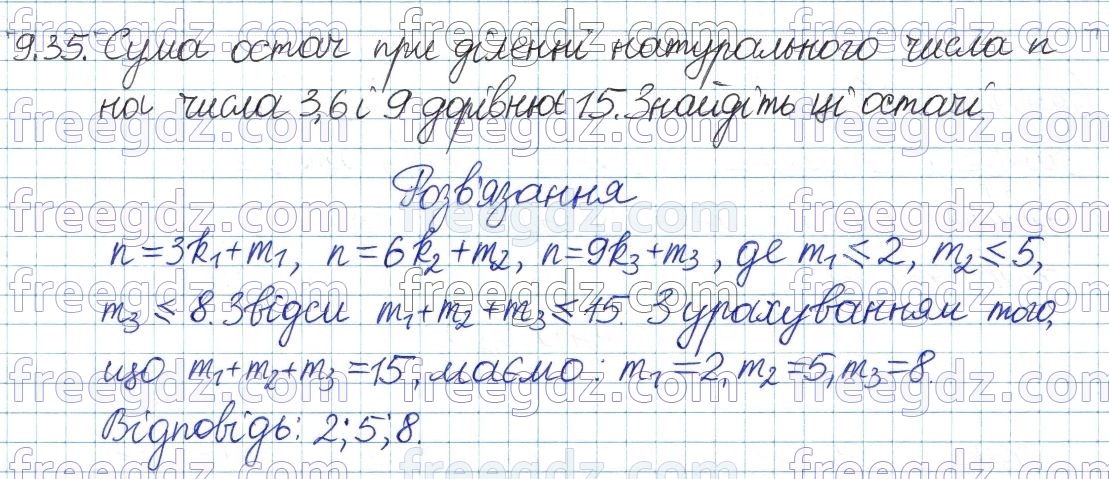 9.35. Сума остач при діленні натурального числа n
на числа 3,6 і 9 дорівнює 15. Знайдіть ці остачі.
Розв'язання
n=3k₁+m₁, n=6k₂+m₂, n=9k₃+m₃, де m₁≤2, m₂≤5,
m₃≤8. Звідси m₁+m₂+m₃≤15. З урахуванням того,
що m₁+m₂+m₃=15, маємо: m₁=2, m₂=5, m₃=8.
Відповідь: 2; 5; 8.
freegdz.com